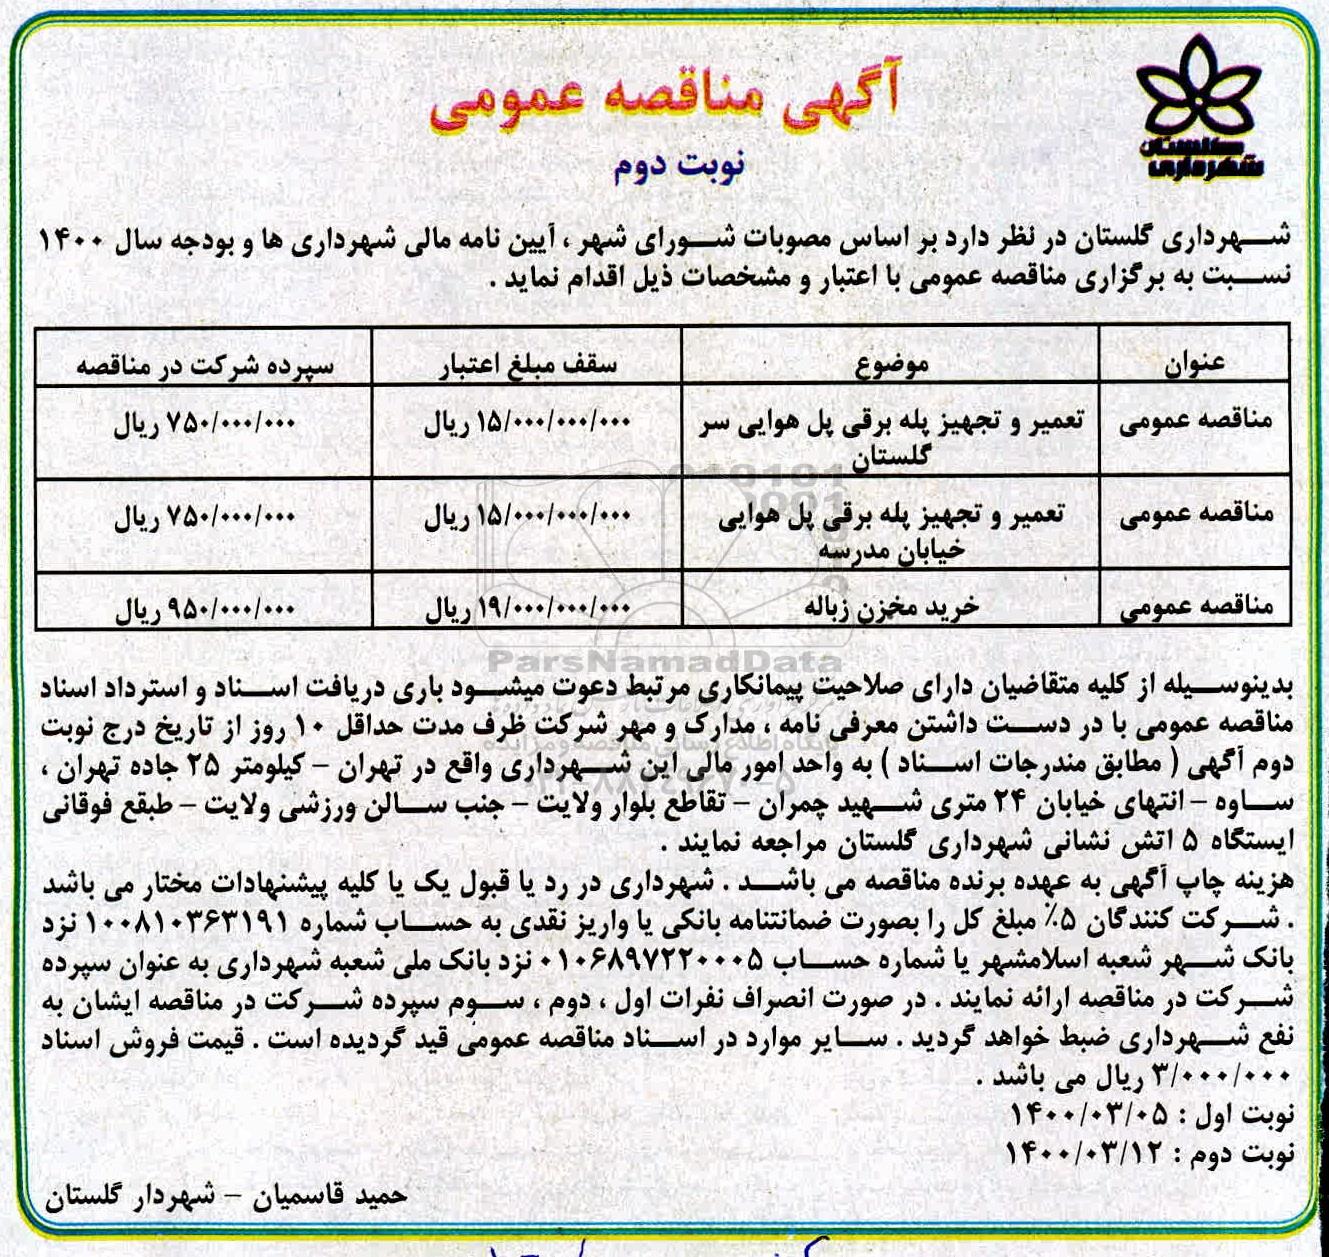 گلستان
شهرداری
آگهی مناقصه عمومی
نوبت دوم
شهرداری گلستان در نظر دارد بر اساس مصوبات شورای شهر ، آیین نامه مالی شهرداری ها و بودجه سال ۱۴۰۰
نسبت به برگزاری مناقصه عمومی با اعتبار و مشخصات ذیل اقدام نماید .
عنوان موضوع سقف مبلغ اعتبار سپرده شرکت در مناقصه
مناقصه عمومی تعمیر و تجهیز پله برقی پل هوایی سر ۱۵/۰۰۰/۰۰۰/۰۰۰ ریال ۷۵۰/۰۰۰/۰۰۰ ریال
گلستان
مناقصه عمومی تعمیر و تجهیز پله برقی پل هوایی ۱۵/۰۰۰/۰۰۰/۰۰۰ ریال ۷۵۰/۰۰۰/۰۰۰ ریال
خیابان مدرسه
مناقصه عمومی خرید مخزن زباله ۱۹/۰۰۰/۰۰۰/۰۰۰ ریال ۹۵۰/۰۰۰/۰۰۰ ریال
ParsNamadData
بدینوسیله از کلیه متقاضیان دارای صلاحیت پیمانکاری مرتبط دعوت میشود باری دریافت اسناد و استرداد اسناد
مناقصه عمومی با در دست داشتن معرفی نامه ، مدارک و مهر شرکت ظرف مدت حداقل ۱۰ روز از تاریخ درج نوبت
دوم آگهی ( مطابق مندرجات اسناد ) به واحد امور مالی این شهرداری واقع در تهران – کیلومتر ۲۵ جاده تهران ،
ساوه – انتهای خیابان ۲۴ متری شهید چمران – تقاطع بلوار ولایت – جنب سالن ورزشی ولایت – طبقع فوقانی
ایستگاه ۵ اتش نشانی شهرداری گلستان مراجعه نمایند .
هزینه چاپ آگهی به عهده برنده مناقصه می باشد . شهرداری در رد یا قبول یک یا کلیه پیشنهادات مختار می باشد
. شرکت کنندگان ۵٪ مبلغ کل را بصورت ضمانتنامه بانکی یا واریز نقدی به حساب شماره ۱۰۰۸۱۰۳۶۳۱۹۱ نزد
بانک شهر شعبه اسلامشهر یا شماره حساب ۰۱۰۶۸۹۷۲۲۰۰۰۵ نزد بانک ملی شعبه شهرداری به عنوان سپرده
شرکت در مناقصه ارائه نمایند . در صورت انصراف نفرات اول ، دوم ، سوم سپرده شرکت در مناقصه ایشان به
نفع شهرداری ضبط خواهد گردید . سایر موارد در اسناد مناقصه عمومی قید گردیده است . قیمت فروش اسناد
۳/۰۰۰/۰۰۰ ریال می باشد .
نوبت اول : ۱۴۰۰/۰۳/۰۵
نوبت دوم : ۱۴۰۰/۰۳/۱۲
حمید قاسمیان – شهردار گلستان